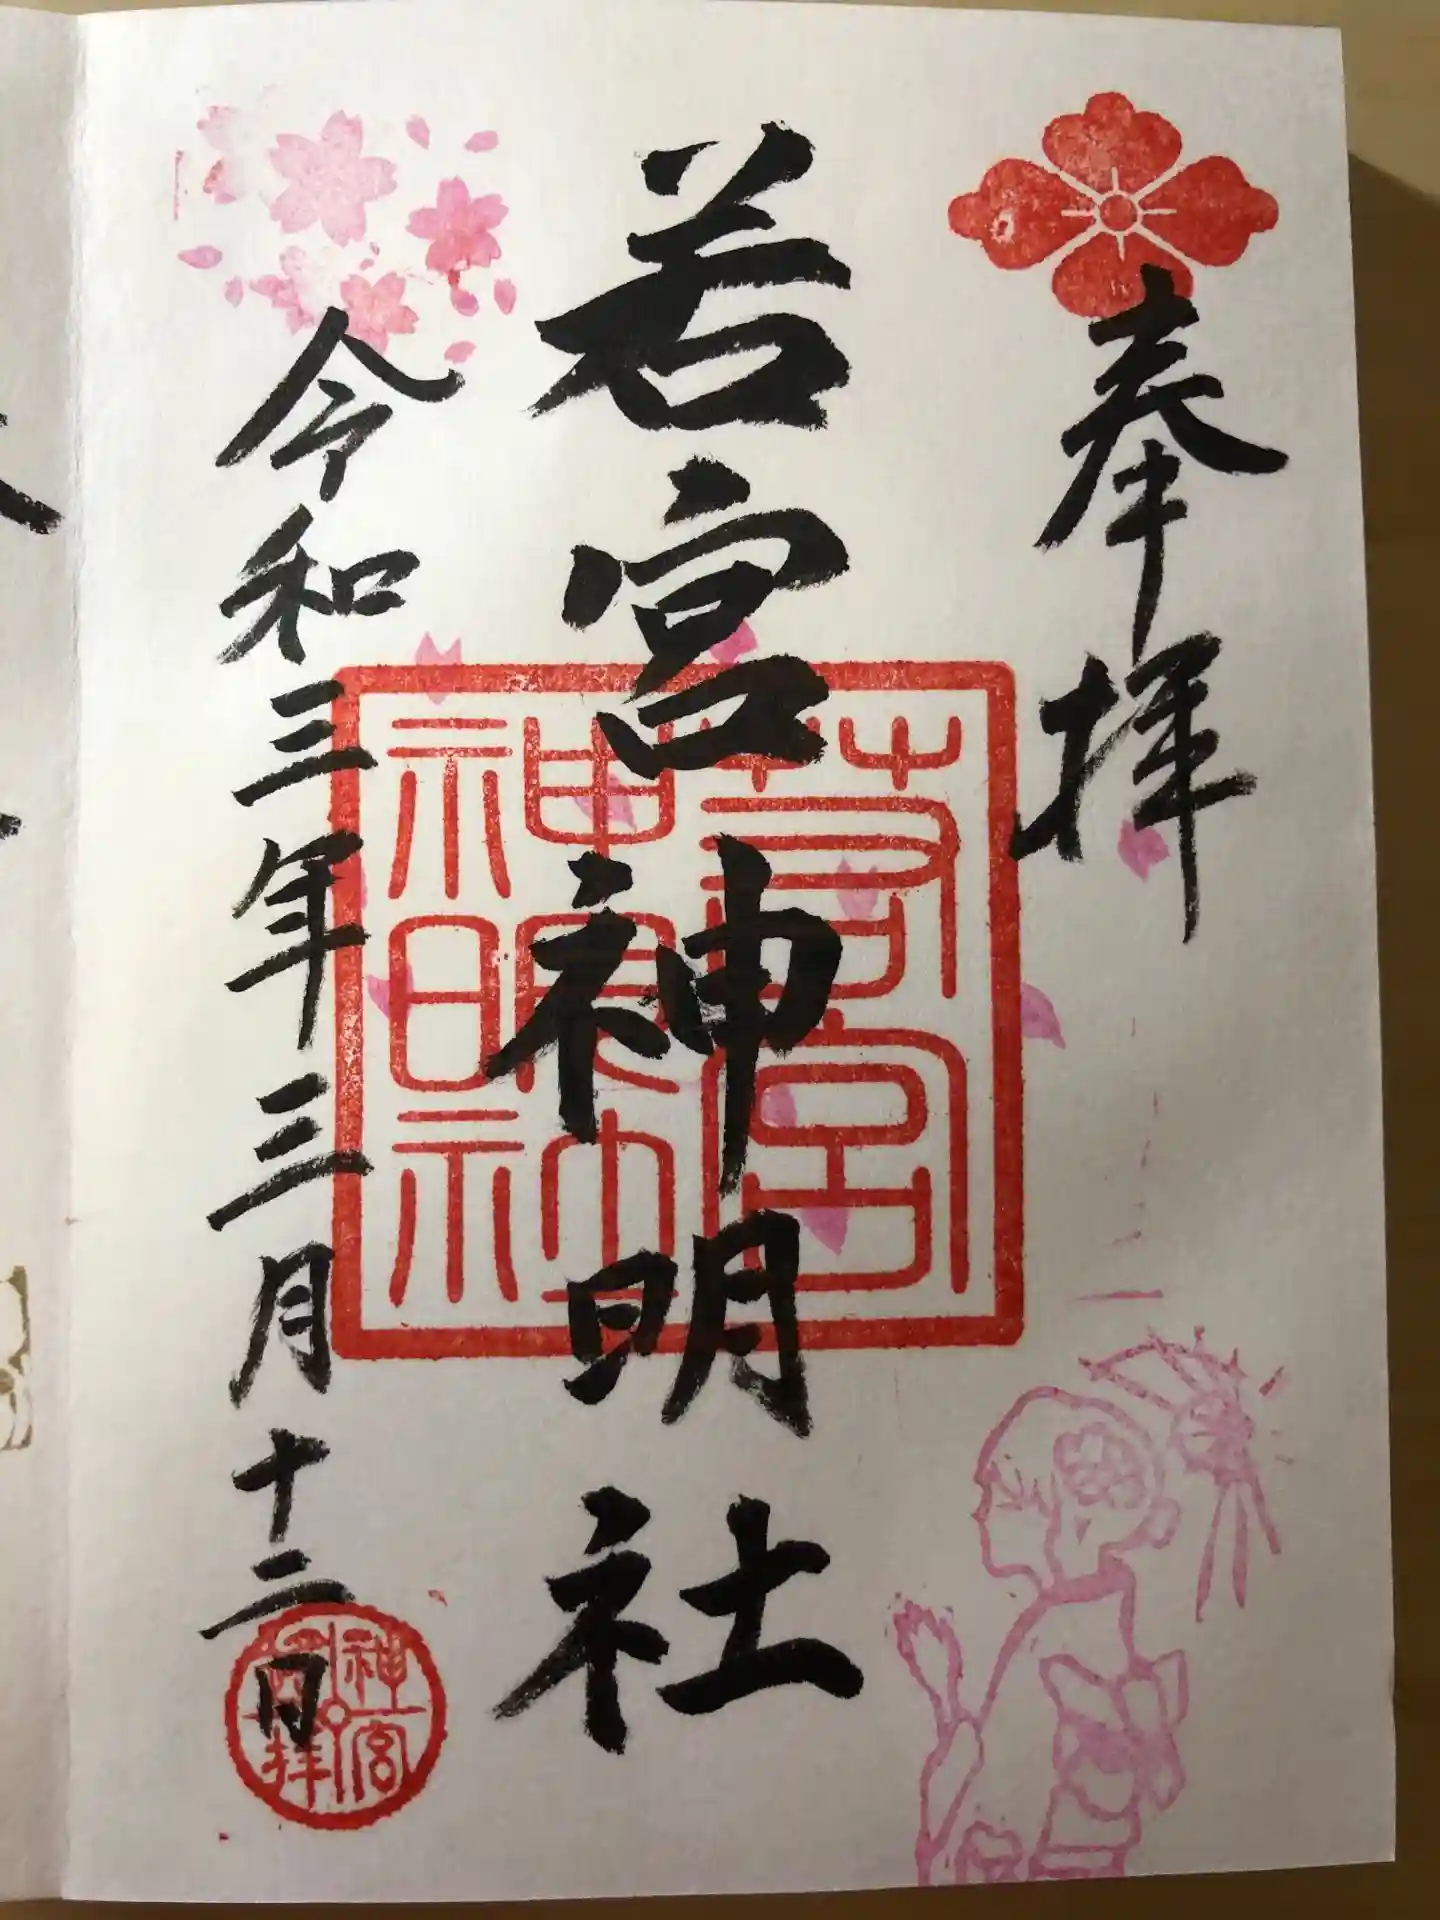 奉拝
若宮神明社
令和三年三月十二日
若宮
神明社
神宮